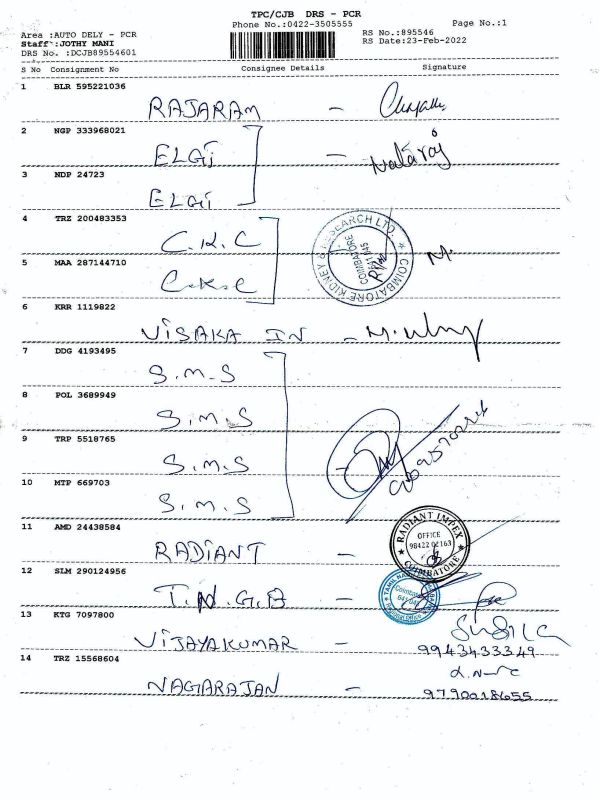 TPC/CJB DRS - PCR
Phone No.:0422-3505555
Page No.:1
Area :AUTO DELY - PCR
RS No.:895546
Staff :JOTHY MANI
RS Date:23-Feb-2022
DRS No. :DCJB89554601
S No Consignment No Consignee Details Signature
1 BLR 595221036
RAJARAM -
2 NGP 333968021
ELGI - Nataraj
3 NDP 24723
ELGI
4 TRZ 200483353
C.K.C
COIMBATORE KIDNEY & RESEARCH LTD.
COIMBATORE
5 MAA 287144710
C.K.C
M.
6 KRR 1119822
VISAKA IN -
7 DDG 4193495
S.M.S
8 POL 3689949
S.M.S
9 TRP 5518765
S.M.S
10 MTP 669703
S.M.S
11 AMD 24438584
RADIANT -
RADIANT IMPEX
OFFICE
COIMBATORE
12 SLM 290124956
T.N.G.B
13 KTG 7097800
VIJAYAKUMAR -
9943433349
14 TRZ 15568604
NAGARAJAN -
9790018655